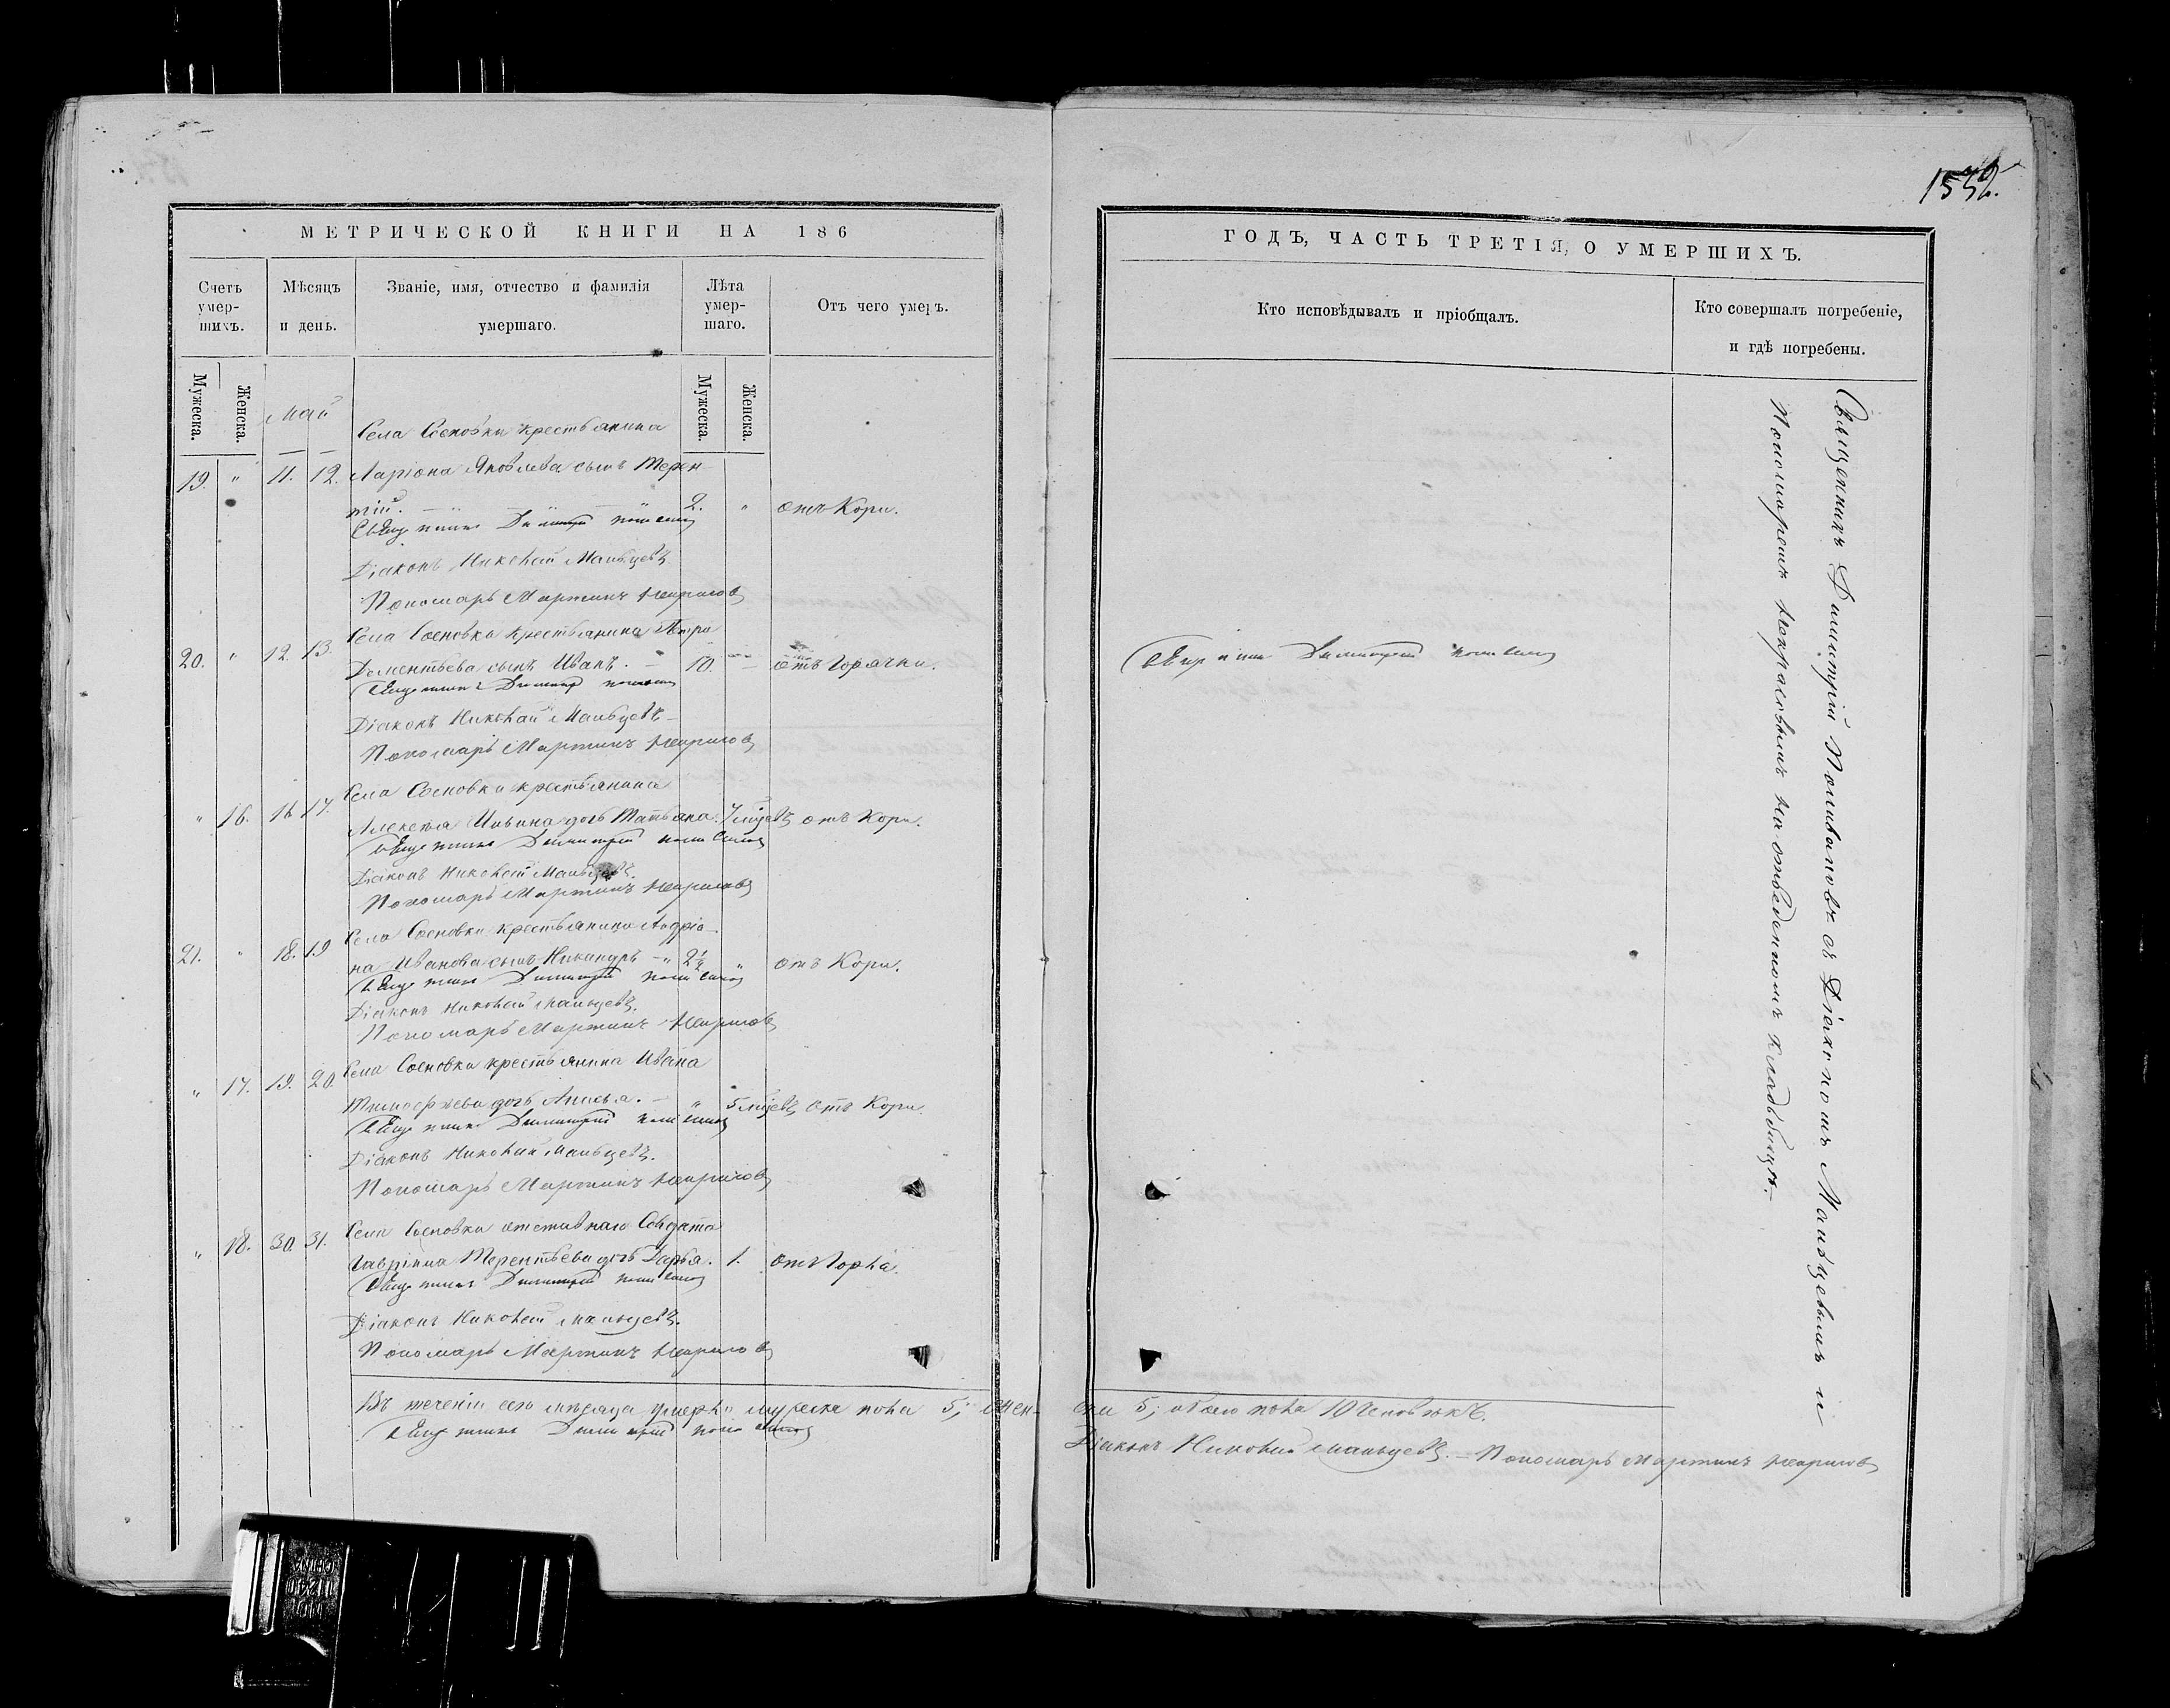 МЕТРИЧЕСКОЙ КНИГИ НА 186
Счетъ умер-шихъ.
Мѣсяцъ и день.
Званіе, имя, отчество и фамилія умершаго.
Лѣта умер-шаго.
Отъ чего умеръ.
Мужеска.
Женска.
Мужеска.
Женска.
Май
Села Сосновки крестьянина
19. " 11. 12. Ларіона Яковлева сынъ Терен-
тій. 2. " отъ Кори.
Священникъ Димитрій
Діаконъ Николай Мальцевъ
Пономарь Мартинъ Некрасовъ
Села Сосновки крестьянина Петра
20. " 12. 13. Дементьева сынъ Иванъ. 10. отъ Горячки.
Священникъ Димитрій
Діаконъ Николай Мальцевъ
Пономарь Мартинъ Некрасовъ
Села Сосновки крестьянина
" 16. 16 17. Алексѣя Ильина дочь Татьяна. 7 мѣсяцевъ отъ Кори.
Священникъ Димитрій
Діаконъ Николай Мальцевъ.
Пономарь Мартинъ Некрасовъ
Села Сосновки крестьянина Андріа-
21. " 18. 19 на Иванова сынъ Никандръ 2½ " отъ Кори.
Священникъ Димитрій
Діаконъ Николай Мальцевъ.
Пономарь Мартинъ Некрасовъ
Села Сосновки крестьянина Ивана
" 17. 19. 20. Тимофѣева дочь Анисья. " 5 мѣсяцевъ отъ Кори.
Священникъ Димитрій
Діаконъ Николай Мальцевъ.
Пономарь Мартинъ Некрасовъ
Села Сосновки отставнаго Солдата
" 18. 30. 31. Гавріила Терентьева дочь Дарья. 1. отъ Горла.
Священникъ Димитрій
Діаконъ Николай Мальцевъ.
Пономарь Мартинъ Некрасовъ
Въ теченіи сего мѣсяца умерло мужеска пола 5; жен-
Священникъ Димитрій
1532.
ГОДЪ, ЧАСТЬ ТРЕТІЯ, О УМЕРШИХЪ.
Кто исповѣдывалъ и пріобщалъ.
Кто совершалъ погребеніе, и гдѣ погребены.
Священникъ Димитрій
Священникъ Димитрій Поливановъ съ Діакономъ Мальцевымъ и
Пономаремъ Некрасовымъ на отведенномъ кладбищѣ.
ска 5; обоего пола 10 человѣкъ.
Діаконъ Николай Мальцевъ. Пономарь Мартинъ Некрасовъ